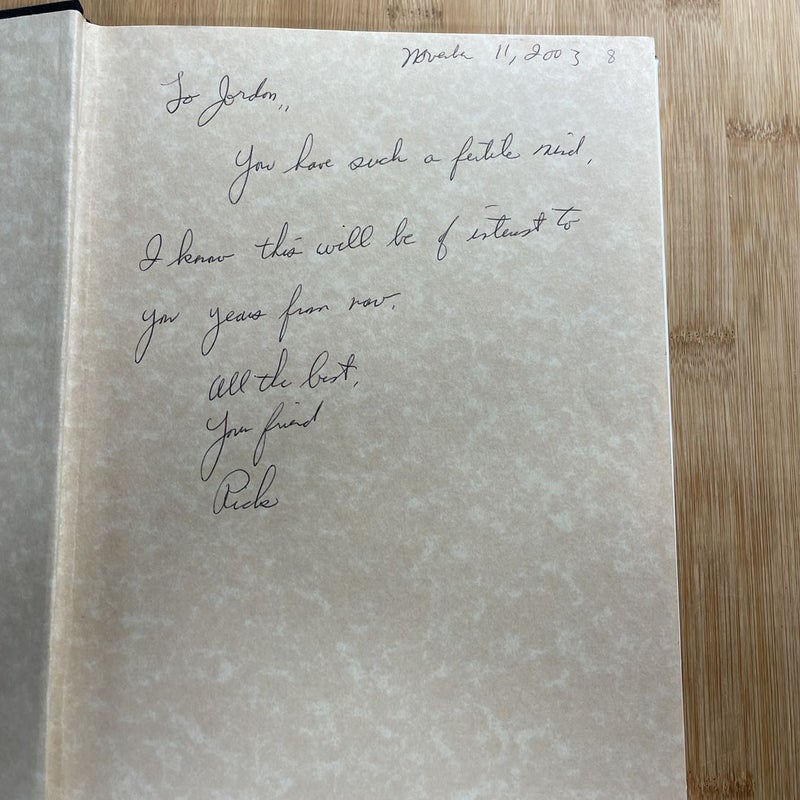 November 11, 2003 8
To Jordon,,
You have such a fertile mind,
I know this will be of interest to
you years from now.
All the best,
Your friend
Rick